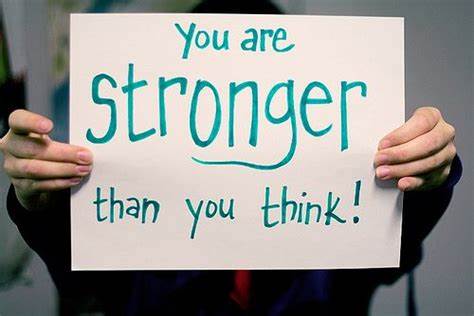 You are
stronger
than you think!